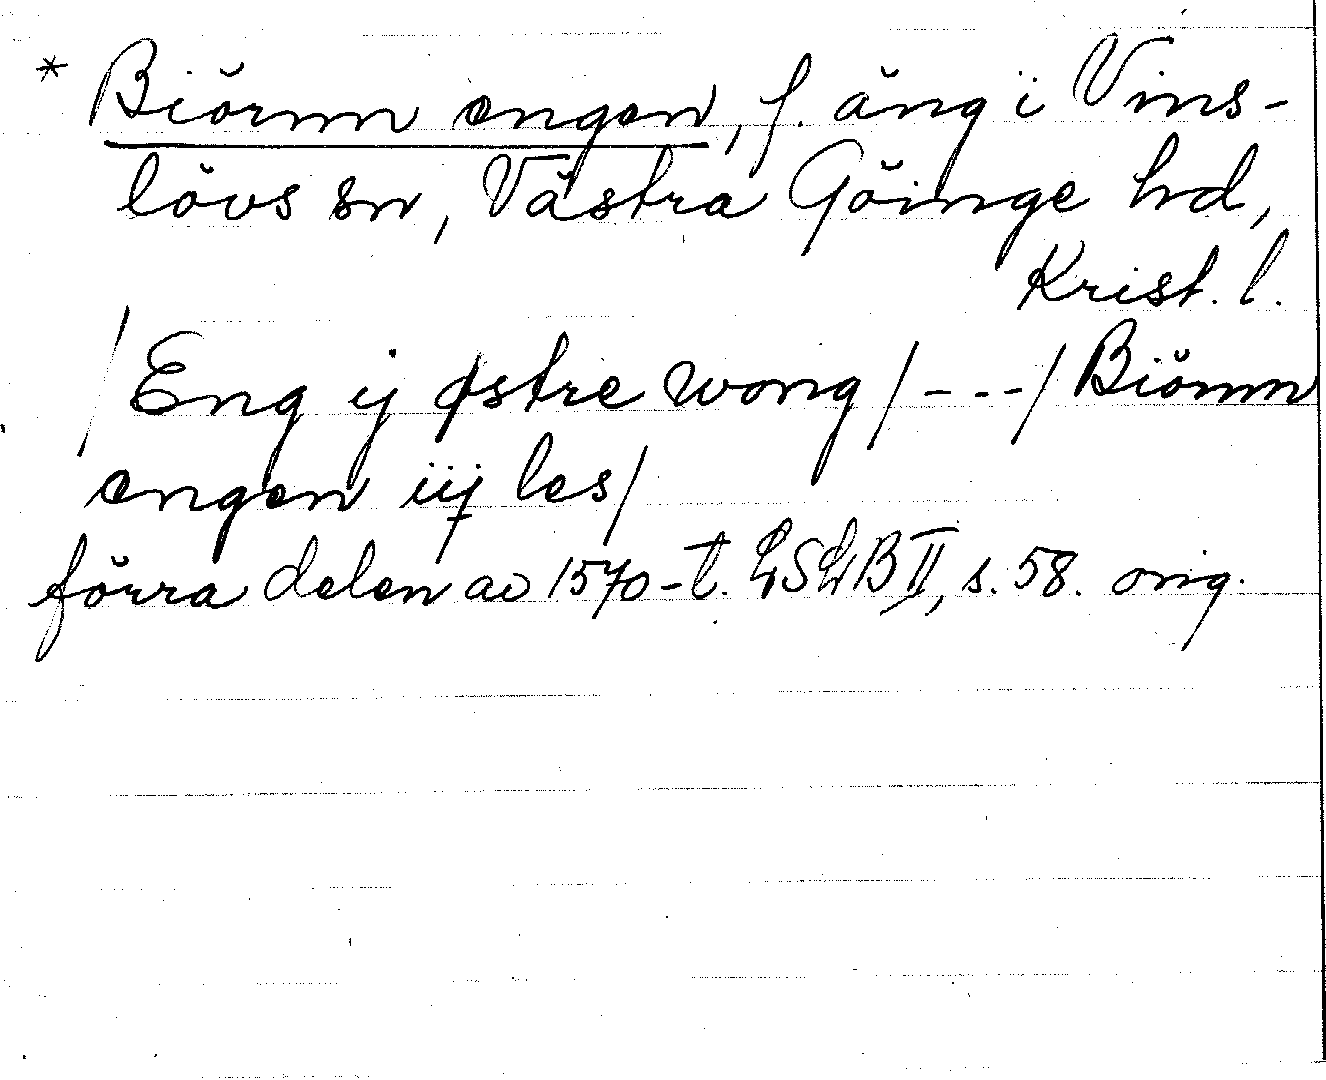 * Biörnn engen, f. äng i Vins-
lövs sn, Västra Göinge hd,
Krist. l.
/Eng ij østre wong/---/Biörnn
engen iij les/
förra delen av 1570-t. LSLB II, s. 58. orig.